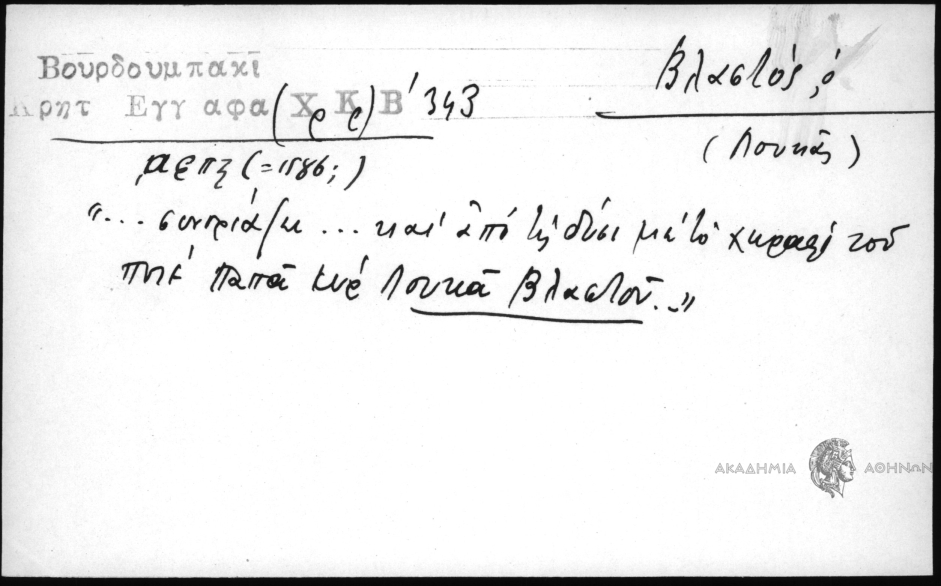 Βουρδουμπακι
Κρητ Εγγ αφα (ρ ρ) Χ Κ Β' 343
Βλαστός, ὁ
(Λουκάς)
͵αφπζ (=1586;)
"... συνοριάζει ... καί ἀπό τή δύσι μέ τό χωράφι τοῦ
ποτέ Παπᾶ κύρ Λουκᾶ Βλαστοῦ.."
ΑΚΑΔΗΜΙΑ ΑΘΗΝΩΝ